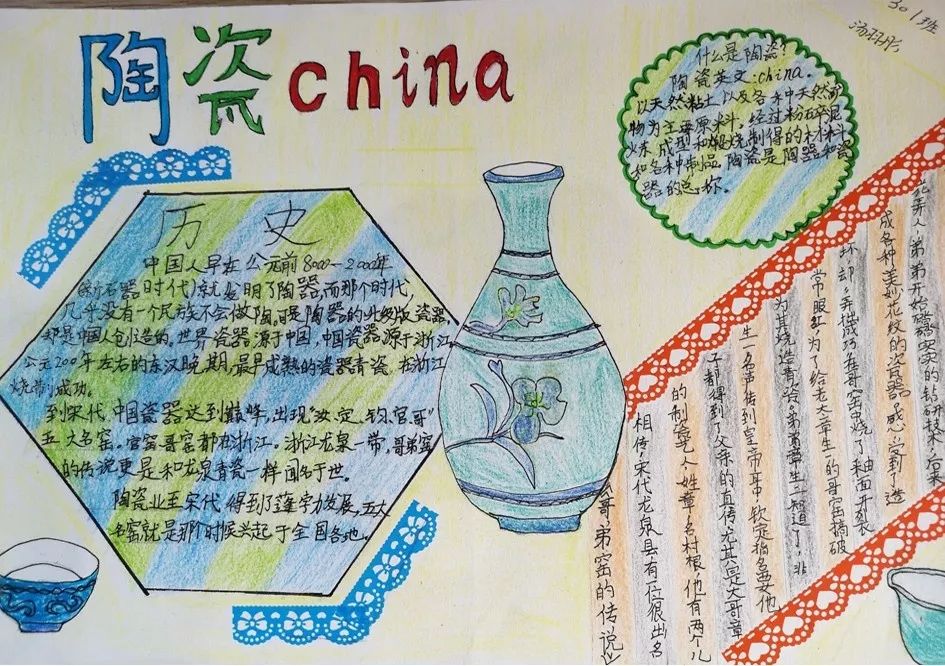 陶瓷china
301班
什么是陶瓷?
陶瓷英文:china.
以天然粘土以及各种中天然矿
物为主要原料,经过粉碎混
炼,成型和煅烧制得的材料
和各种制品。陶瓷是陶器和瓷
器的总称.
历史
中国人早在公元前8000—2000年
(新石器时代)就发明了陶器,而那个时代,
几乎没有一个民族不会做陶。可是陶器的升级版瓷器,
却是中国人创造的,世界瓷器源于中国,中国瓷器源于浙江,
公元200年左右的东汉晚期,最早成熟的瓷器青瓷,在浙江
烧制成功。
到宋代,中国瓷器达到巅峰,出现"汝、定、钧、官、哥"
五大名窑。官窑哥窑都在浙江。浙江龙泉一带,哥弟窑
的传说更是和龙泉青瓷一样闻名于世。
陶瓷业至宋代得到了蓬勃发展,五大
名窑就是那时候兴起于全国各地。
《哥弟窑的传说》
相传,宋代龙泉县,有一位很出名
的制瓷艺人,姓章,名村根,他有两个儿
子,都得到了父亲的真传,尤其是大哥章
生一,名声传到皇帝耳中,钦定指名要他
为其烧造青瓷。弟弟章生二知道了,非
常眼红,为了给老大章生一的哥窑搞破
坏,却弄拙成巧,在哥窑中烧了釉面开裂
成各种美妙花纹的瓷器。感受到了造
化弄人,弟弟开始踏踏实实的钻研技术,后来